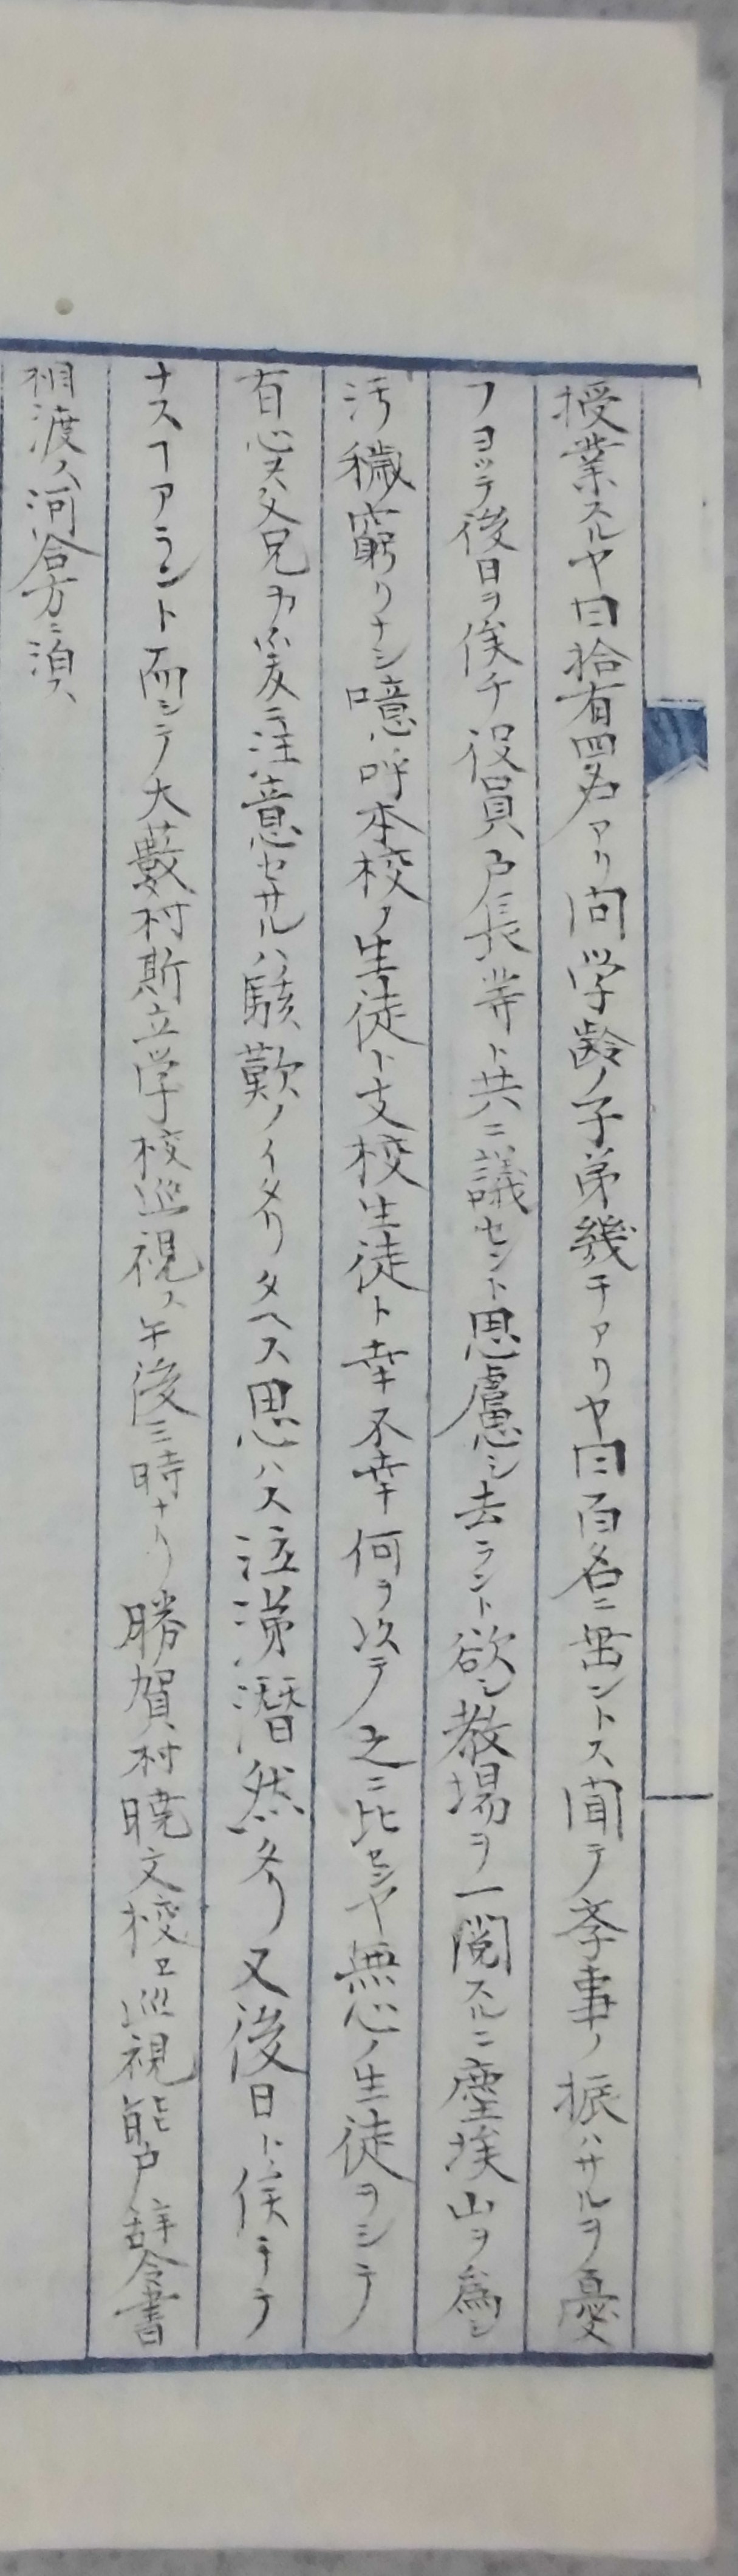 授業スルヤ曰拾有四名アリ問学齢ノ子弟幾チアリヤ曰百名ニ垂ントス聞テ孝事ノ振ハサルヲ憂
フヨッテ後日ヲ俟チ役員戸長等ト共ニ議セント思慮シ去ラント欲シ教場ヲ一閲スルニ塵埃山ヲ為シ
汚穢窮リナシ噫呼本校ノ生徒ト支校生徒ト幸不幸何ヲ以テ之ニ比センヤ無心ノ生徒ヲシテ
有心ノ父兄カ爰ニ注意セサルハ駭歎ノイタリタヘス思ハス泣涕潸然タリ又後日ヲ俟チテ
ナスヿアラント而シテ大藪村斯立学校巡視ス午後三時ナリ勝賀村暁文校ヱ巡視能戸辞令書
相渡ス河合方ニ泊ス